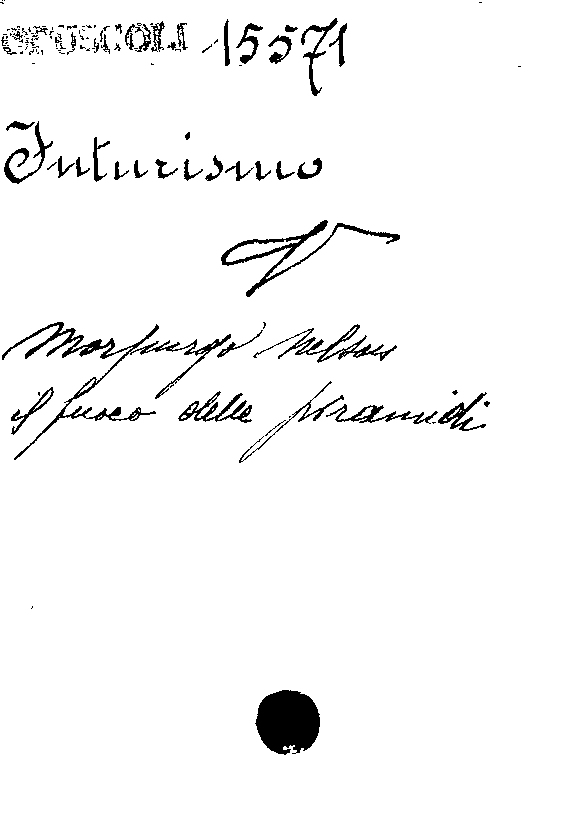 OPUSCOLI 15571
Futurismo
V
Morpurgo Nelson
il fuoco delle piramidi